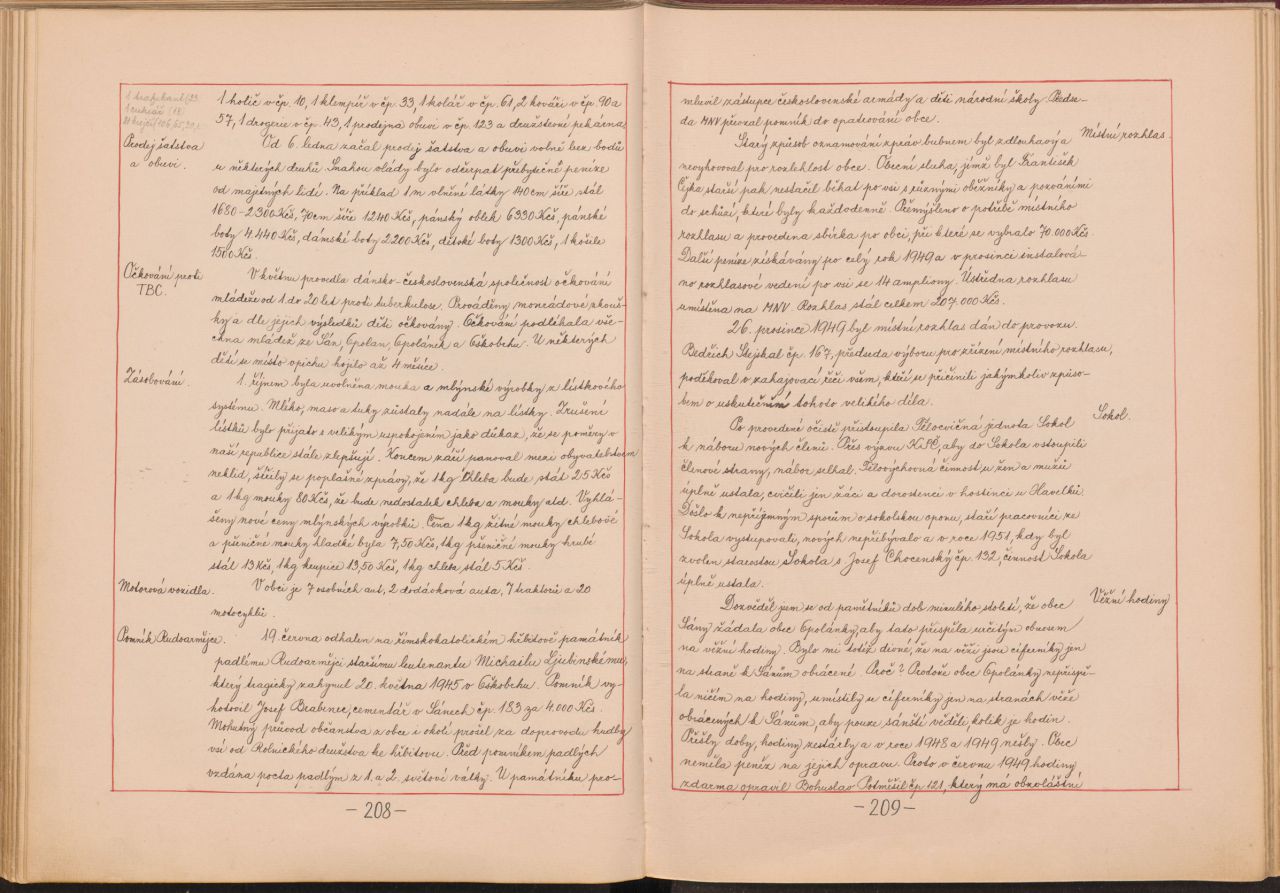 1 trafikant (23
1 cukrář (18)
1 holič v čp. 10, 1 klempíř v čp. 33, 1 kolář v čp. 61, 2 kováři v čp. 90 a
57, 1 drogerie v čp. 43, 1 prodejna obuvi v čp. 123 a družstevní pekárna.
Prodej šatstva
a obuvi.
Od 6. ledna začal prodej šatstva a obuvi volně bez bodů
u některých druhů. Snahou vlády bylo odčerpat přebytečné peníze
od majetných lidí. Na příklad 1 m vlněné látky 140 cm šíře stál
1680-2300 Kčs, 70 cm šíře 1240 Kčs, pánský oblek 6330 Kčs, pánské
boty 4.440 Kčs, dámské boty 2200 Kčs, dětské boty 1300 Kčs, 1 košile
1500 Kčs.
Očkování proti
TBC.
V květnu provedla dánsko-československá společnost očkování
mládeže od 1 do 20 let proti tuberkulose. Prováděny monrádové zkouš-
ky a dle jejich výsledků děti očkovány. Očkování podléhala vše-
chna mládež ze Sán, Opolan, Opolánek a Oškobrhu. U některých
dětí se místo opichu hojilo až 4 měsíce.
Zásobování.
1. říjnem byla uvolněna mouka a mlýnské výrobky z lístkového
systému. Mléko, maso a tuky zůstaly nadále na lístky. Zrušení
lístků bylo přijato s velikým uspokojením jako důkaz, že se poměry v
naší republice stále zlepšují. Koncem září panoval mezi obyvatelstvem
neklid, šířily se poplašné zprávy, že 1 kg chleba bude stát 25 Kčs
a 1 kg mouky 80 Kčs, že bude nedostatek chleba a mouky atd. Vyhlá-
šeny nové ceny mlýnských výrobků. Cena 1 kg žitné mouky chlebové
a pšeničné mouky hladké byla 7,50 Kčs, 1 kg pšeničné mouky hrubé
stál 13 Kčs, 1 kg krupice 13,50 Kčs, 1 kg chleba stál 5 Kčs.
Motorová vozidla.
V obci je 7 osobních aut, 2 dodávková auta, 7 traktorů a 20
motocyklů.
Pomník Rudoarmějce.
19. června odhalen na římskokatolickém hřbitově památník
padlému Rudoarmějci staršímu leutenantu Michailu Ljubinskému,
který tragicky zahynul 20. května 1945 v Oškobrhu. Pomník vy-
hotovil Josef Brabenec, cementář v Sánech čp. 183 za 4.000 Kčs.
Mohutný průvod občanstva z obce i okolí prošel za doprovodu hudby
vsí od Rolnického družstva ke hřbitovu. Před pomníkem padlých
vzdána pocta padlým z 1. a 2. světové války. U památníku pro-
-208-
mluvil zástupce československé armády a děti národní školy. Předse-
da MNV převzal pomník do opatrování obce.
Místní rozhlas.
Starý způsob oznamování zpráv bubnem byl zdlouhavý a
nevyhovoval pro rozlehlost obce. Obecní sluha, jímž byl František
Čejka starší pak nestačil běhat po vsi s různými oběžníky a pozváními
do schůzí, které byly každodenně. Přemýšleno o potřebě místního
rozhlasu a provedena sbírka po obci, při které se vybralo 70.000 Kčs.
Další peníze získávány po celý rok 1949 a v prosinci instalová-
no rozhlasové vedení po vsi se 14 ampliony. Ústředna rozhlasu
umístěna na MNV. Rozhlas stál celkem 207.000 Kčs.
26. prosince 1949 byl místní rozhlas dán do provozu.
Bedřich Stejskal čp. 167, předseda výboru pro zřízení místního rozhlasu,
poděkoval v zahajovací řeči všem, kteří se přičinili jakýmkoliv způso-
bem o uskutečnění tohoto velikého díla.
Sokol.
Po provedené očistě přistoupila Tělocvičná jednota Sokol
k náboru nových členů. Přes výzvu KSČ, aby do Sokola vstoupili
členové strany, nábor selhal. Tělovýchovná činnost u žen a mužů
úplně ustala, cvičili jen žáci a dorostenci v hostinci u Havelků.
Došlo k nepříjemným sporům o sokolskou oponu, staří pracovníci ze
Sokola vystupovali, nových nepřibývalo a v roce 1951, kdy byl
zvolen starostou Sokola s. Josef Chocenský čp. 132, činnost Sokola
úplně ustala.
Věžní hodiny
Dozvěděl jsem se od pamětníků dob minulého století, že obec
Sány žádala obec Opolánky, aby tato přispěla určitým obnosem
na věžní hodiny. Bylo mi totiž divné, že na věži jsou ciferníky jen
na straně k Sánům obrácené. Proč? Protože obec Opolánky nepřispě-
la ničím na hodiny, umístily se ciferníky jen na stranách věže
obrácených k Sánům, aby pouze sánští věděli kolik je hodin.
Přešly doby, hodiny zestárly a v roce 1948 a 1949 nešly. Obec
neměla peněz na jejich opravu. Proto v červnu 1949 hodiny
zdarma opravil Bohuslav Potměšil čp. 121, který má obzvláštní
-209-